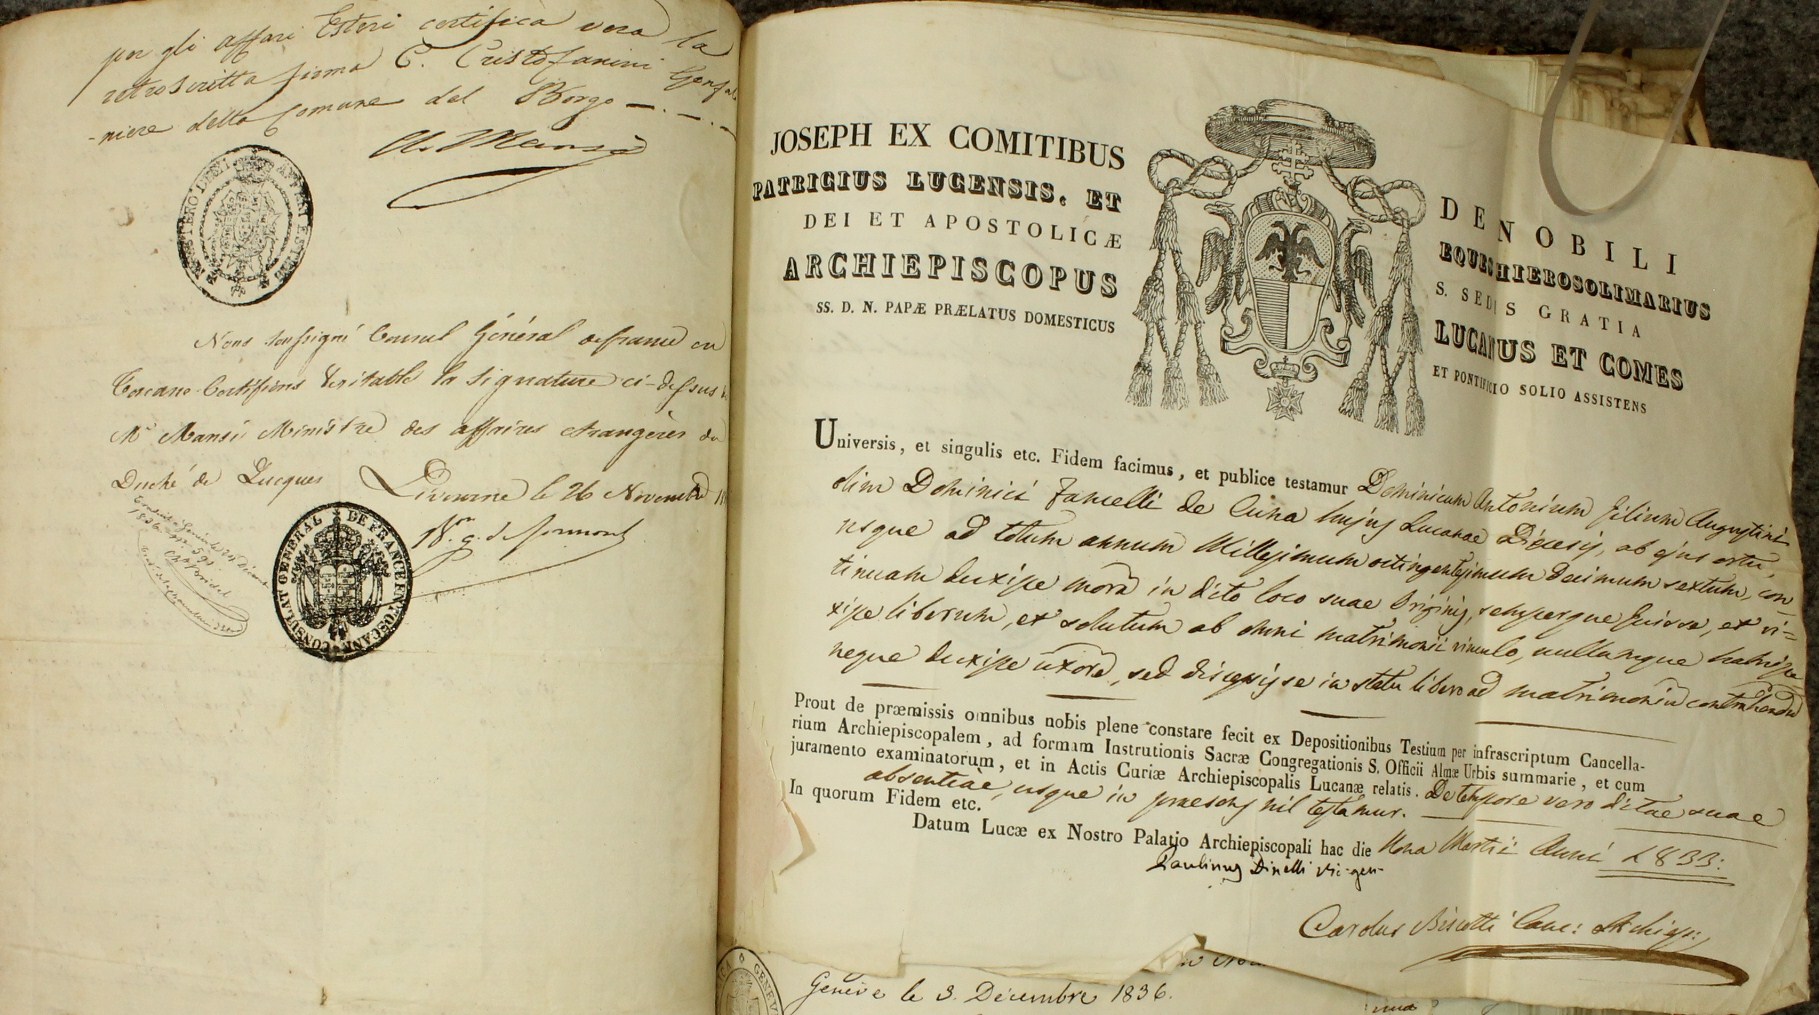 per gli affari Esteri certifica vera la
retroscritta firma C. Cristofanini Gonfalo
-niere della Comune del Borgo
A. Mansi
MINISTERO DEGLI AFFARI ESTERI
Nous soussigné Consul Général de france en
Toscane Certifions Veritable la signature ci-dessus
Mr Mansi Ministre des affaires etrangères du
Duché de Lucques
Livourne le 26 Novembre
CONSULAT GENERAL DE FRANCE EN TOSCANE
1836
JOSEPH EX COMITIBUS DENOBILI
PATRICIUS LUCENSIS, ET EQUES HIEROSOLIMARIUS
DEI ET APOSTOLICÆ S. SEDIS GRATIA
ARCHIEPISCOPUS LUCANUS ET COMES
SS. D. N. PAPÆ PRÆLATUS DOMESTICUS ET PONTIFICIO SOLIO ASSISTENS
Universis, et singulis etc. Fidem facimus, et publice testamur Dominicum Antonium filium Augustini
olim Dominici Fancelli de Cuna hujus Lucanae Diœcesis, ab ejus ortu,
usque ad totum annum Millesimum octingentesimum decimum sextum, con
tinuam duxisse moram in dicto loco suae Originis, semperque fuisse, et vi=
xisse liberum, et solutum ab omni matrimonii vinculo, nullamque habuisse
neque duxisse uxorem, sed discessisse in statu libero ad matrimonium contrahendum
Prout de præmissis omnibus nobis plene constare fecit ex Depositionibus Testium per infrascriptum Cancella-
rium Archiepiscopalem, ad formam Instrutionis Sacræ Congregationis S. Officii Almæ Urbis summarie, et cum
juramento examinatorum, et in Actis Curiæ Archiepiscopalis Lucanæ relatis. De tempore vero dictae suae
absentiae, usque in praesens nil testamur.
In quorum Fidem etc.
Datum Lucæ ex Nostro Palatio Archiepiscopali hac die Nona Martii Anni 1833:
Paulinus Dinelli Vic-gen-
Carolus Biscotti Canc: Archiep:
Genève le 3. Décembre 1836.